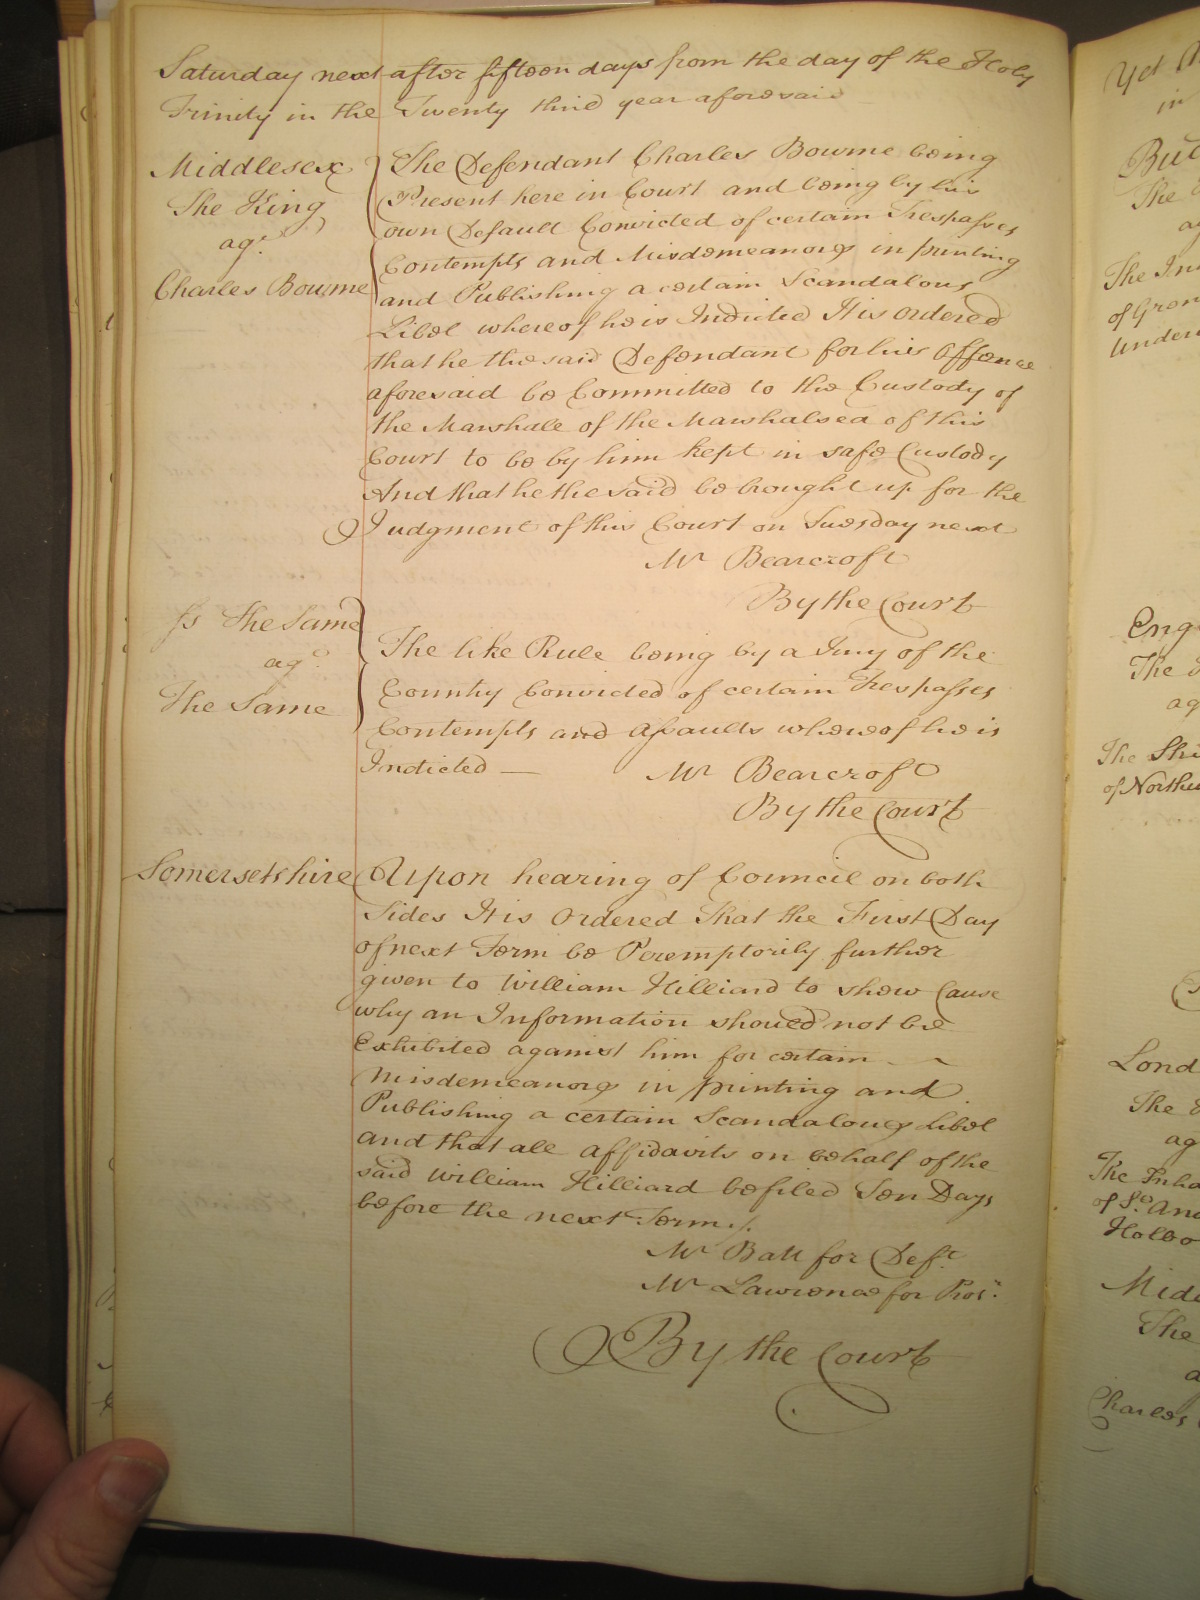 Saturday next after fifteen days from the day of the Holy
Trinity in the Twenty third year aforesaid
Middlesex
The King
agt.
Charles Bourne
The Defendant Charles Bourne being
Present here in Court and being by his
own Default Convicted of certain Trespasses
Contempts and Misdemeanors in printing
and Publishing a certain Scandalous
Libel whereof he is Indicted It is ordered
that he the said Defendant for his Offence
aforesaid be Committed to the Custody of
the Marshall of the Marshalsea of this
Court to be by him kept in safe Custody
And that he the said be brought up for the
Judgment of this Court on Tuesday next
Mr Bearcroft
By the Court
Ss The Same
agt.
The Same
The like Rule being by a Jury of the
Country Convicted of certain Trespasses
Contempts and Assaults whereof he is
Indicted —
Mr Bearcroft
By the Court
Somersetshire
Upon hearing of Council on both
Sides It is Ordered That the First Day
of next Term be Peremptorily further
given to William Hilliard to shew Cause
why an Information should not be
Exhibited against him for certain
Misdemeanors in printing and
Publishing a certain Scandalous Libel
and that all affidavits on behalf of the
said William Hilliard be filed Ten Days
before the next Term ./.
Mr Batt for Deft.
Mr Lawrence for Pror.
By the Court
Yet
in
But
The
ag
The In
of Gra
Under
Eng
The
ag
The Shi
of North
Lond
The
ag
The Inha
of St. And
Holbo
Midd
The
a
Charles